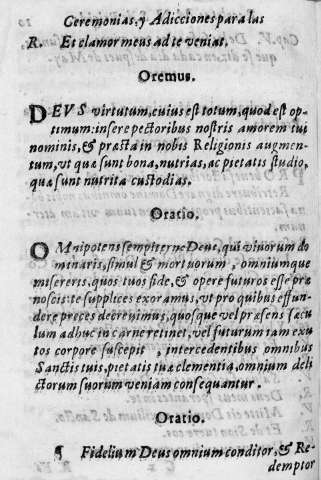 Ceremonias, y Adicciones para las
R. Et clamor meus ad te venias.
Oremus.
DEVS virtutum, cuius est totum, quod est op-
timum: insere pectoribus nostris amorem tui
nominis, & præsta in nobis Religionis augmen-
tum, vt quæ sunt bona, nutrias, ac pietatis studio,
quæ sunt nutrita custodias.
Oratio.
OMnipotens sempiterne Deus, qui viuorum do
minaris, simul & mortuorum, omniumque
misereris, quos tuos fide, & opere futuros esse præ
noscis: te supplices exoramus, vt pro quibus effun-
dere preces decreuimus, quosque vel præsens sæcu
lum adhuc in carne retinet, vel futurum iam exu
tos corpore suscepit, intercedentibus omnibus
Sanctis tuis, pietatis tuæ clementia, omnium deli
ctorum suorum veniam consequantur.
Oratio.
¶ Fidelium Deus omnium conditor, & Re-
demptor